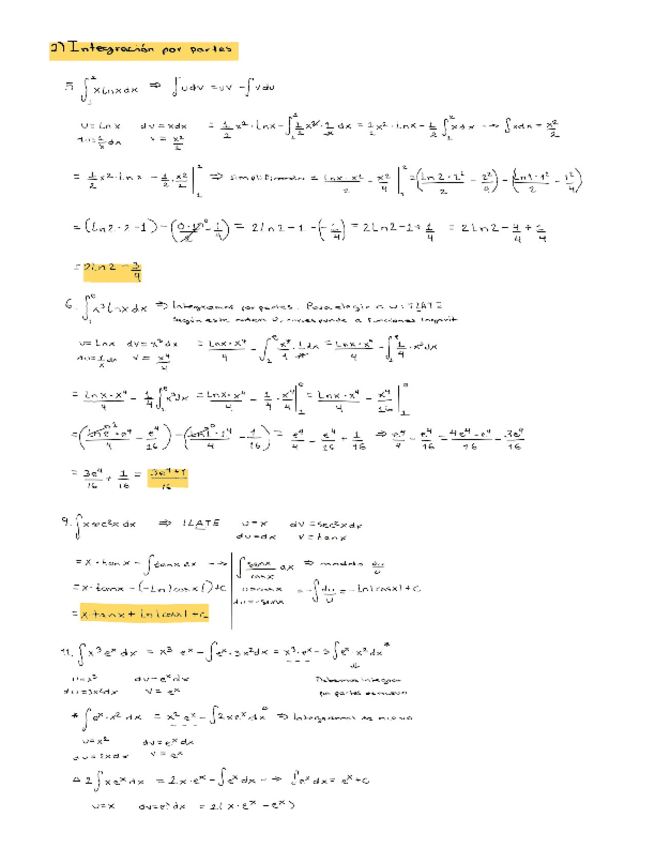 2) Integración por partes
5. ∫₁² x ln x dx ⇒ ∫u dv = uv − ∫v du
u = ln x dv = x dx = 1/2 x² · ln x − ∫₁² 1/2 x² · 1/x dx = 1/2 x² · ln x − 1/2 ∫₁² x dx → ∫x dx = x²/2
du = 1/x dx v = x²/2
= 1/2 x² · ln x − 1/2 · x²/2 |₁² ⇒ = ln x · x²/2 − x²/4 |₁² = (ln 2 · 2²/2 − 2²/4) − (ln 1 · 1²/2 − 1²/4)
= (ln 2 · 2 − 1) − (0 · 1²/2 − 1/4) = 2 ln 2 − 1 − (−1/4) = 2 ln 2 − 1 + 1/4 = 2 ln 2 − 4/4 + 1/4
= 2 ln 2 − 3/4
6. ∫₁ᵉ x³ ln x dx ⇒ Integramos por partes. Para elegir u: ILATE
Según este orden u, corresponde a funciones
u = ln x dv = x³ dx = ln x · x⁴/4 − ∫₁ᵉ x⁴/4 · 1/x dx = ln x · x⁴/4 − ∫₁ᵉ 1/4 · x³ dx
du = 1/x dx v = x⁴/4
= ln x · x⁴/4 − 1/4 ∫₁ᵉ x³ dx = ln x · x⁴/4 − 1/4 · x⁴/4 |₁ᵉ = ln x · x⁴/4 − x⁴/16 |₁ᵉ
= (ln e · e⁴/4 − e⁴/16) − (ln 1 · 1⁴/4 − 1/16) = e⁴/4 − e⁴/16 + 1/16 ⇒ e⁴/4 − e⁴/16 = 4e⁴ − e⁴/16 = 3e⁴/16
= 3e⁴/16 + 1/16 = 3e⁴ + 1/16
9. ∫x sec² x dx ⇒ ILATE u = x dv = sec² x dx
du = dx v = tan x
= x · tan x − ∫tan x dx → ∫ sen x/cos x dx ⇒ modelo du/u
= x · tan x − (−ln|cos x|) + C u = cos x = −∫du/u = −ln|cos x| + C
du = −sen x
= x tan x + ln|cos x| + C
11. ∫x³ eˣ dx = x³ · eˣ − ∫eˣ · 3x² dx = x³ · eˣ − 3∫eˣ · x² dx *
u = x³ dv = eˣ dx Debemos integrar
du = 3x² dx v = eˣ por partes de nuevo
* ∫eˣ · x² dx = x² eˣ − ∫2x eˣ dx ⇒ Integramos de nuevo
u = x² dv = eˣ dx
du = 2x dx v = eˣ
Δ 2∫x eˣ dx = 2x · eˣ − ∫eˣ dx → ∫eˣ dx = eˣ + C
u = x dv = eˣ dx = 2(x · eˣ − eˣ)